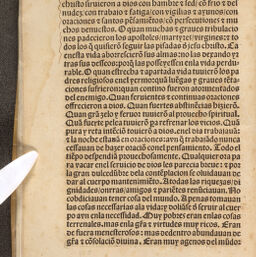 christo siruieron a dios con hambre z sed: cō frio z des
nudez: con trabajo z fatiga: con vigilias z ayunos: con
oraciones z santos pēsamiētos: cō persecutiones z mu
chos denuestos. O quan muchas z graues tribulacio
nes padecieron los apostoles: martyres: virgines: z to
dos los q̄ quisierō seguir las pisadas d̄ jesu christo. Ca en
esta vida aborrescierō sus almas: no las dexando yr
tras sus desseos: porq̄ las posseyessen enla vida perdu-
rable. O quan estrecha z apartada vida tuuierō los pa
dres religiosos enel yermo: quā luēgas z graues tēta-
ciones sufrieron: quan contino fueron atormentados
del enemigo. Quan feruientes z continuas oraciones
offrecieron a dios. Quan fuertes abstinēcias hizierō.
Quan grā zelo y feruor tuuierō al prouecho spiritual.
Quā fuerte pelea tuuierō pa refrenar los vicios. Quā
pura y reta intēciō touierō a dios. enel dia trabajauā:
z la noche estauā en oraciones: avn q̄ trabajādo nunca
cessauan de hazer oraciō conel pensamiento. Todo el
tiēpo despendiā prouechosamente. Qualquier ora pa
ra vacar enel seruicio de dios les parecia breue: z por
la gran dulcedūbre dela contēplacion se oluidauan de
dar al cuerpo mantenimiēto. A todas las riquezas: di
gnidades: honrras: amigos z pariētes renūciauan. No
cobdiciauan tener cosa del mundo. A penas tomauan
las cosas necessarias ala vida: z doliāse d̄ seruir al cuer
po avn enla necessidad. Muy pobres eran enlas cosas
terrenales. mas enla gr̄a z virtudes muy ricos. Eran
de fuera menesterosos: mas dedentro abundauan de
gr̄a z cōsolaciō diuina. Eran muy agenos del mūdo: